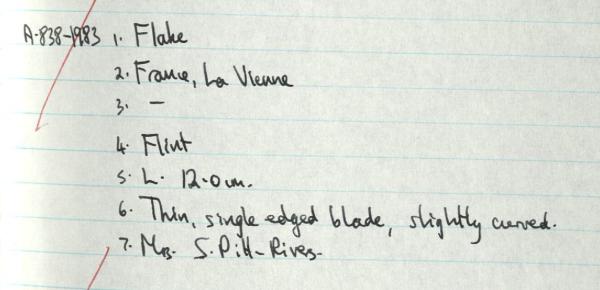 A-838-1983 1. Flake
2. France, La Vienne
3. —
4. Flint
5. L. 12.0 cm.
6. Thin, single edged blade, slightly curved.
7. Mrs. S. Pitt-Rivers.